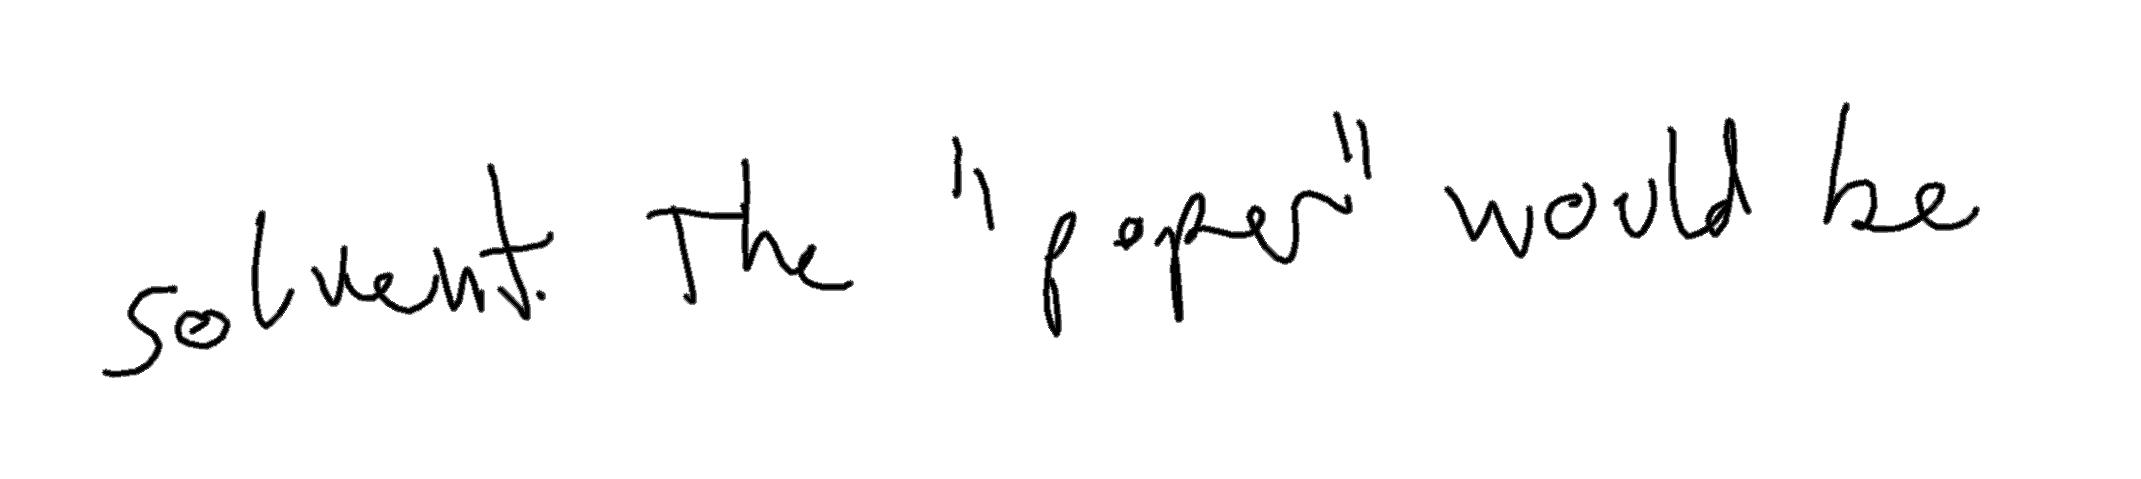 solvent. The "paper" would be